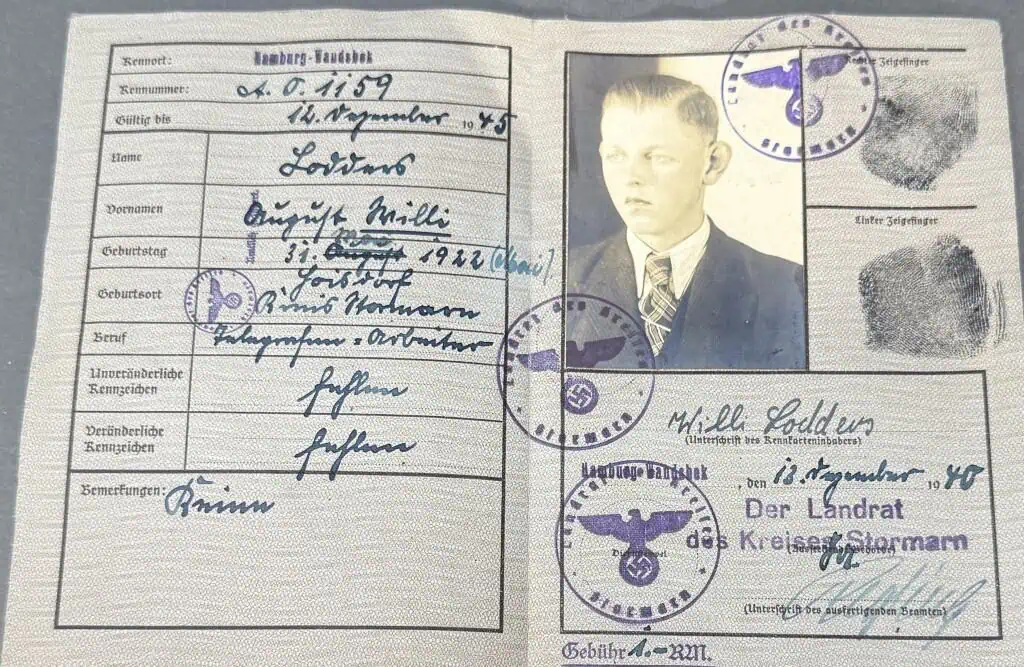 Kennort: Hamburg-Wandsbek
Kennummer: A. O. 1159
Gültig bis 12. Dezember 1945
Name Lodders
Vornamen August Willi
Mai
Geburtstag 31. August 1922 (Mai)
Geburtsort Hoisdorf
Kreis Stormarn
Beruf Telegrafen-Arbeiter
Unveränderliche
Kennzeichen fehlen
Veränderliche
Kennzeichen fehlen
Bemerkungen: Keine
Landrat des Kreises
Stormarn
Rechter Zeigefinger
Linker Zeigefinger
Landrat des Kreises
Stormarn
Willi Lodders
(Unterschrift des Kennkarteninhabers)
Hamburg-Wandsbek, den 13. Dezember 1940
Landrat des Kreises
Stormarn
Dienststempel
Der Landrat
des Kreises Stormarn
(Ausfertigende Behörde)
(Unterschrift des ausfertigenden Beamten)
Gebühr 1.- RM.